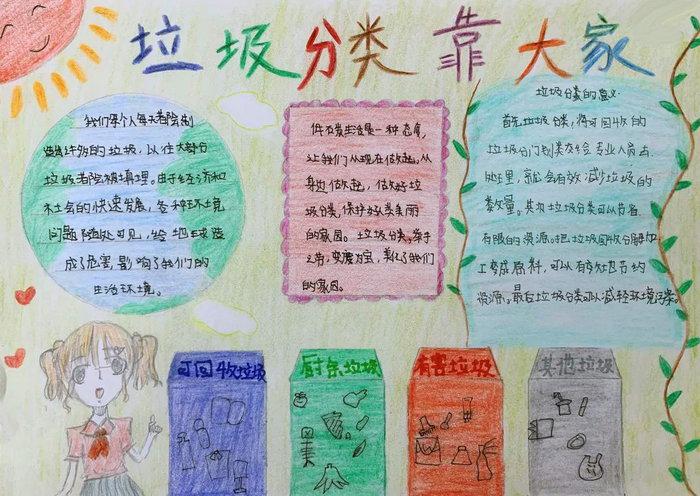 垃圾分类靠大家
我们每个人每天都会制
造许多的垃圾，以往大部分
垃圾都会被填埋。由于经济和
社会的快速发展，各种环境
问题随处可见，给地球造
成了危害，影响了我们的
生活环境。
低碳生活是一种态度，
让我们从现在做起，从
身边做起，做好垃
圾分类，保护好人类美丽
的家园。垃圾分类，举手
之劳，变废为宝，美化了我们
的家园。
垃圾分类的意义
首先垃圾分类，将可回收的
垃圾分门别类交给专业人员去
处理，就会有效减少垃圾的
数量。其次垃圾分类可以节省
有限的资源。把垃圾回收分解加
工变成原料，可以有效地节约
资源。最后垃圾分类可以减轻环境污染。
可回收垃圾
厨余垃圾
有害垃圾
其他垃圾